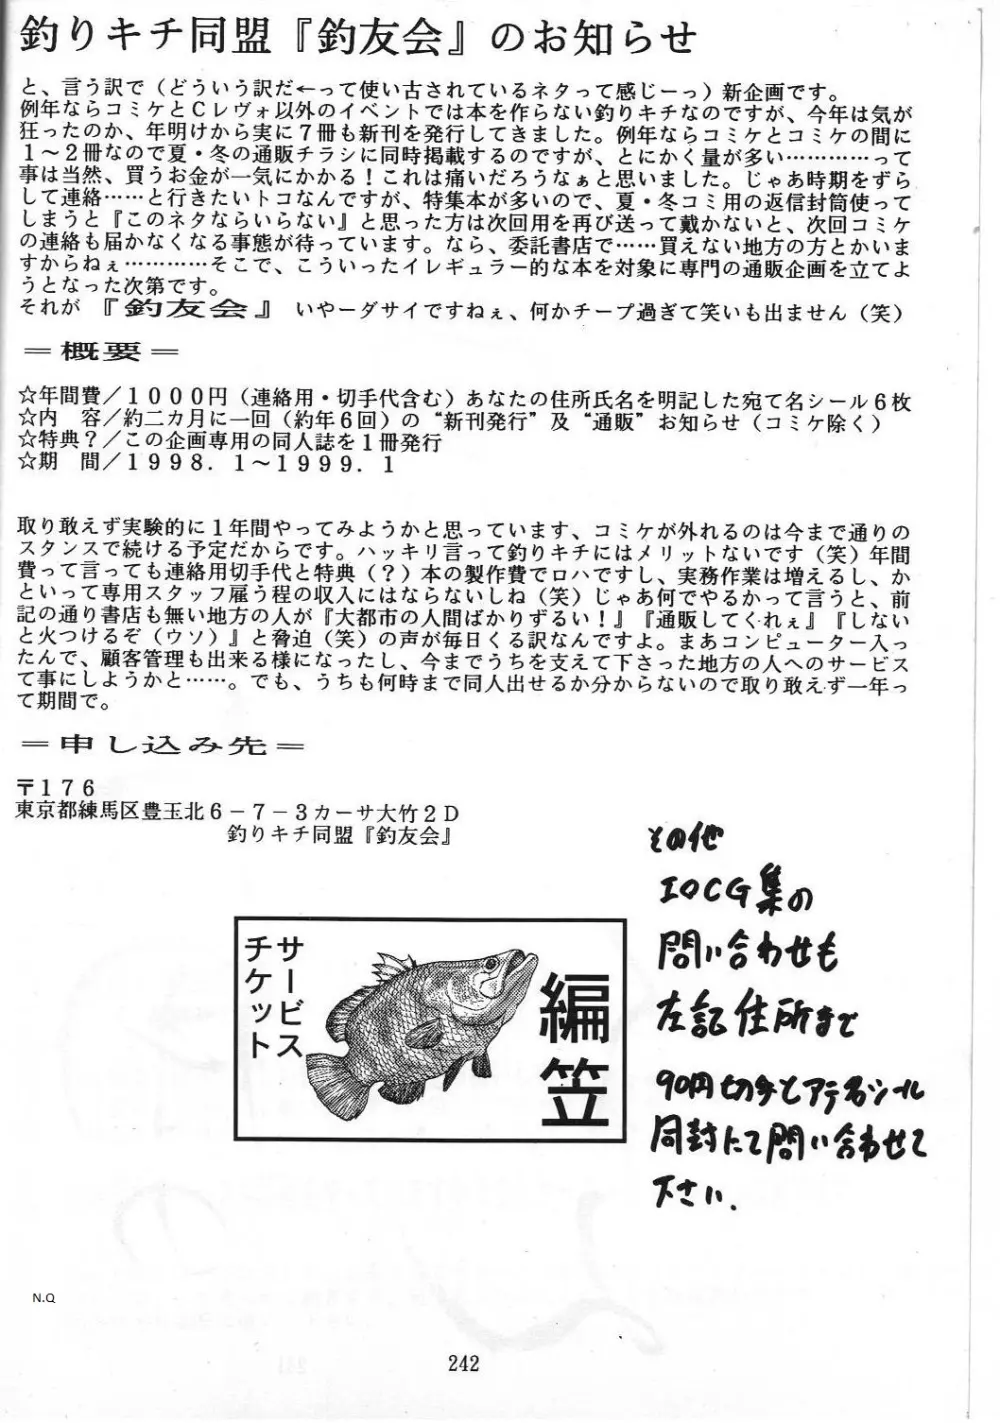 釣りキチ同盟『釣友会』のお知らせ
と、言う訳で（どういう訳だ←って使い古されているネタって感じーっ）新企画です。
例年ならコミケとＣレヴォ以外のイベントでは本を作らない釣りキチなのですが、今年は気が
狂ったのか、年明けから実に７冊も新刊を発行してきました。例年ならコミケとコミケの間に
１～２冊なので夏・冬の通販チラシに同時掲載するのですが、とにかく量が多い…………って
事は当然、買うお金が一気にかかる！これは痛いだろうなぁと思いました。じゃあ時期をずら
して連絡……と行きたいトコなんですが、特集本が多いので、夏・冬コミ用の返信封筒使って
しまうと『このネタならいらない』と思った方は次回用を再び送って戴かないと、次回コミケ
の連絡も届かなくなる事態が待っています。なら、委託書店で……買えない地方の方とかいま
すからねぇ…………そこで、こういったイレギュラー的な本を対象に専門の通販企画を立てよ
うとなった次第です。
それが『釣友会』いやーダサイですねぇ、何かチープ過ぎて笑いも出ません（笑）
＝概要＝
☆年間費／１０００円（連絡用・切手代含む）あなたの住所氏名を明記した宛て名シール６枚
☆内　容／約二カ月に一回（約年６回）の“新刊発行”及“通販”お知らせ（コミケ除く）
☆特典？／この企画専用の同人誌を１冊発行
☆期　間／１９９８．１～１９９９．１
取り敢えず実験的に１年間やってみようかと思っています、コミケが外れるのは今まで通りの
スタンスで続ける予定だからです。ハッキリ言って釣りキチにはメリットないです（笑）年間
費って言っても連絡用切手代と特典（？）本の製作費でロハですし、実務作業は増えるし、か
といって専用スタッフ雇う程の収入にはならないしね（笑）じゃあ何でやるかって言うと、前
記の通り書店も無い地方の人が『大都市の人間ばかりずるい！』『通販してくれぇ』『しない
と火つけるぞ（ウソ）』と脅迫（笑）の声が毎日くる訳なんですよ。まあコンピューター入っ
たんで、顧客管理も出来る様になったし、今までうちを支えて下さった地方の人へのサービス
て事にしようかと……。でも、うちも何時まで同人出せるか分からないので取り敢えず一年っ
て期間で。
＝申し込み先＝
〒１７６
東京都練馬区豊玉北６－７－３カーサ大竹２Ｄ
釣りキチ同盟『釣友会』
サービス
チケット
編笠
その他
IOCG集の
問い合わせも
左記住所まで
90円切手とアテ名シール
同封にて問い合わせて
下さい.
N.Q
242